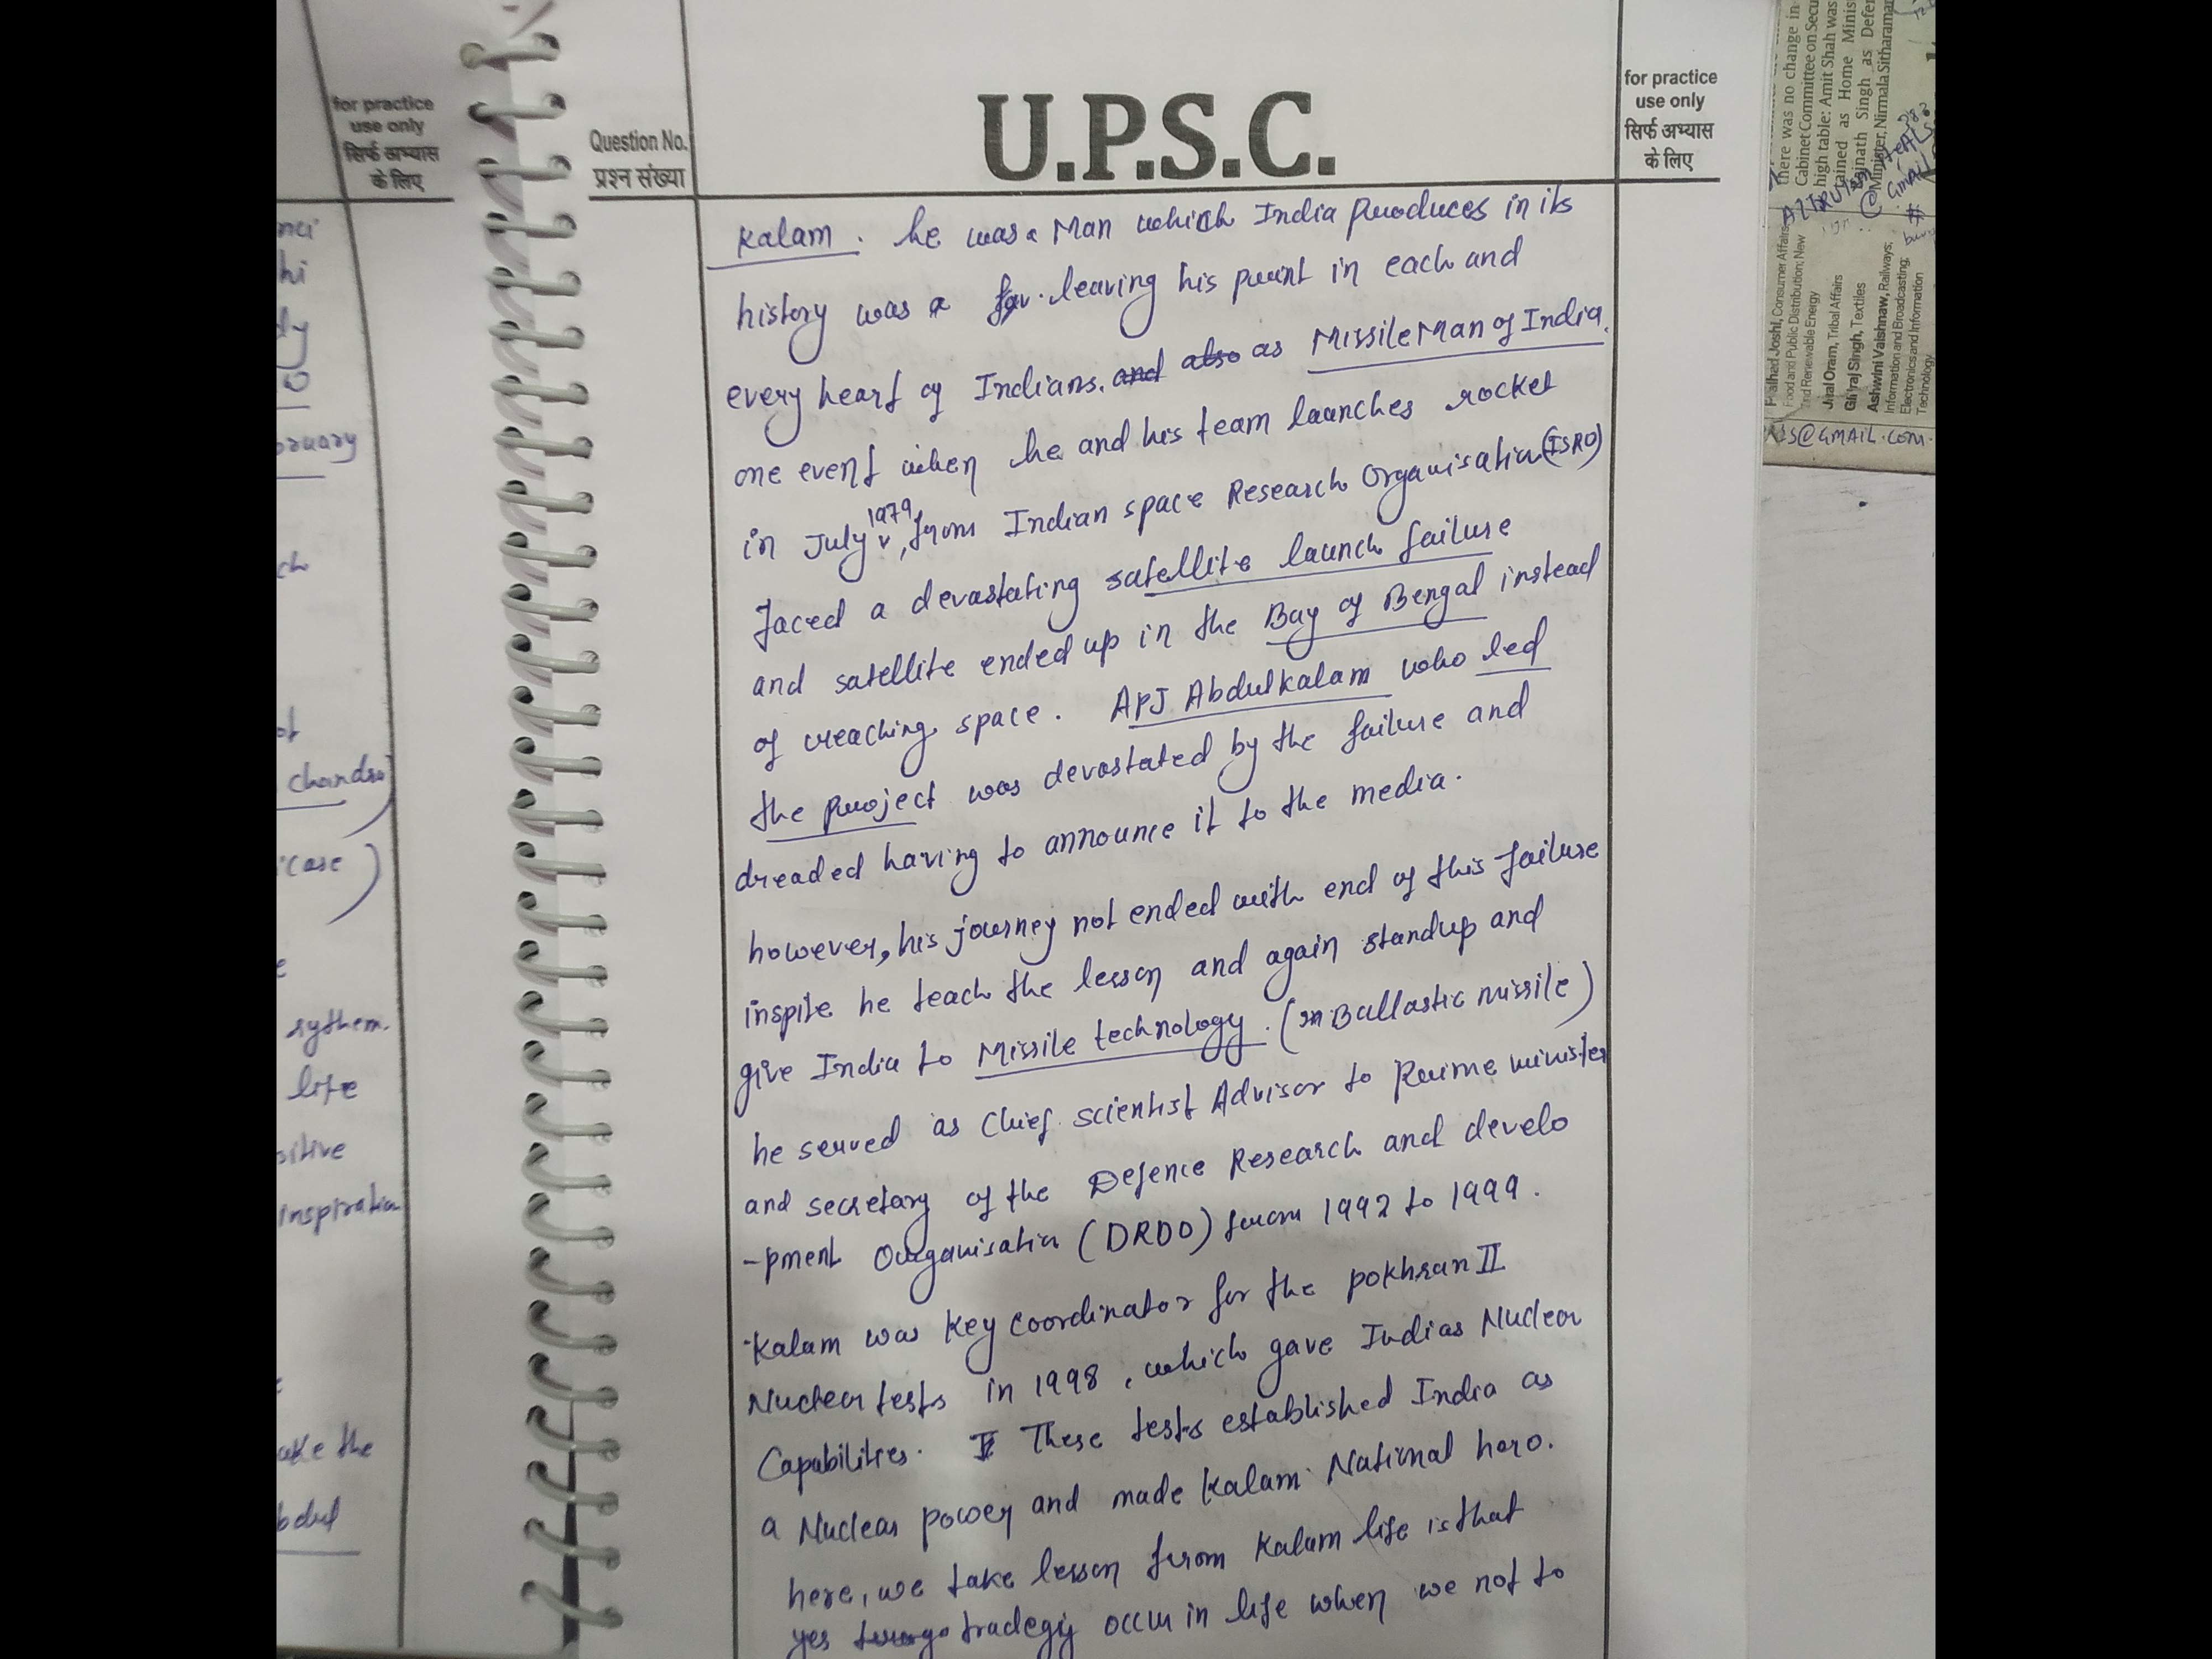 for practice
use only
सिर्फ अभ्यास
के लिए
hi
bruary
ch
chandra)
case)
e
sythem.
life
sitive
inspiration
ake the
bdul
Question No.
प्रश्न संख्या
U.P.S.C.
for practice
use only
सिर्फ अभ्यास
के लिए
Kalam. he was a Man which India produces in its
history was a for leaving his print in each and
every heart of Indians. and also as Missile Man of India.
one event when he and his team launches rocket
in July 1979, from Indian space Research Organisation (ISRO)
faced a devastating satellite launch failure
and satellite ended up in the Bay of Bengal instead
of reaching space. APJ Abdulkalam who led
the project was devastated by the failure and
dreaded having to announce it to the media.
however, his journey not ended with end of this failure
inspite he teach the lesson and again standup and
give India to Missile technology. (in Ballastic missile)
he served as Chief scientist Advisor to Prime minister
and secretary of the Defence Research and develo
-pment Organisation (DRDO) from 1992 to 1999.
Kalam was key coordinator for the pokhran II
Nuclear tests in 1998, which gave Indias Nuclear
Capabilities. These tests established India as
a Nuclear power and made Kalam National hero.
here, we take lesson from Kalam life is that
yes tradegiy occur in life when we not to
there was no change in
Cabinet Committee on Secu
high table: Amit Shah was
tained as Home Minis
ajnath Singh as Defen
Minister, Nirmala Sitharaman
Pralhad Joshi, Consumer Affairs,
Food and Public Distribution; New
and Renewable Energy
Jual Oram, Tribal Affairs
Giriraj Singh, Textiles
Ashwini Vaishnaw, Railways;
Information and Broadcasting;
Electronics and Information
Technology
S@GMAIL.COM.